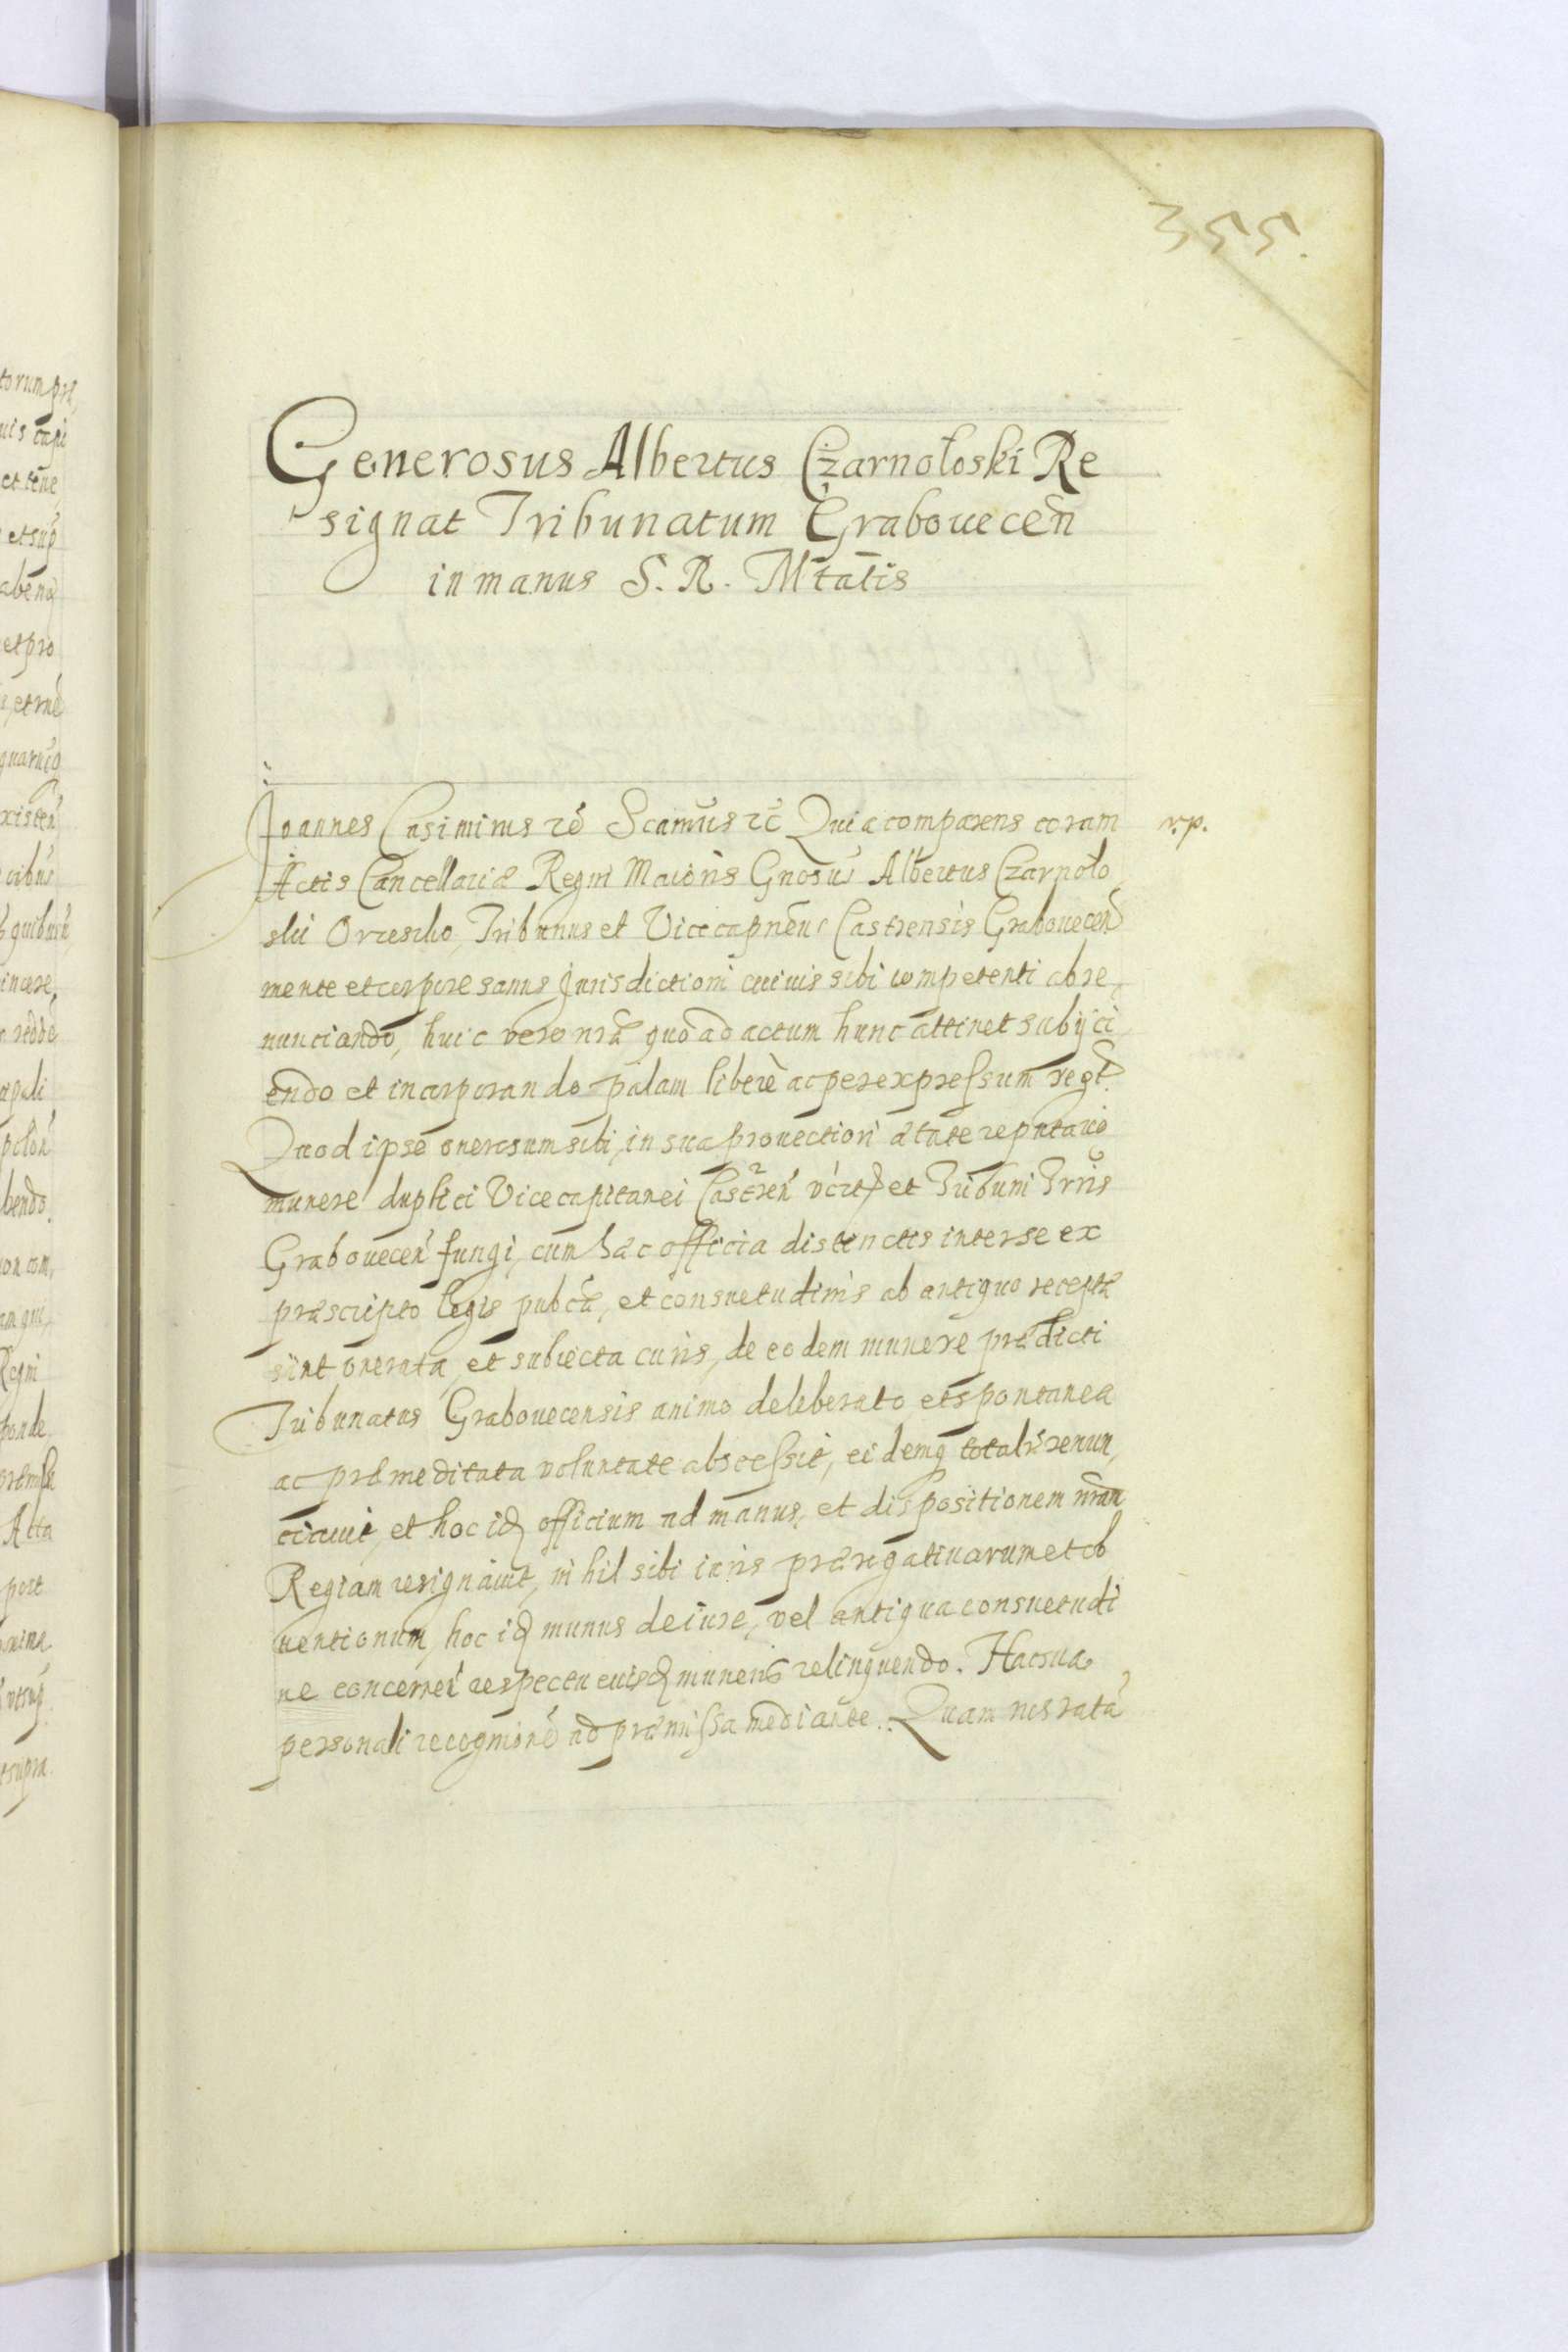 355.
Generosus Albertus Czarnołoski Re
signat Tribunatum Grabouecen̄
in manus S. R. Mtātis
Joannes Casimirus &c̄ Scamūs &c̄ Quia comparens coram
r.p.
Actis Cancellariæ Regni Maioris Gnosus Albertus Czarnoło
ski Orzeszko, Tribunus et Vicecapneus Castrensis Grabouecen̄
mente et corpore sanus Jurisdictioni cuiuis sibi competenti abre,
nunciando, huic vero nr̄æ quo ad actum hunc attinet subijci
endo et incorporando palam liberè ac per expressum regt.
Quod ipse onerosum sibi, in sua prouectiori ætate reputauo
munere duplici Vicecapitanei Castren̄ vc̄rt et Tribuni Trr̄is
Grabouecen̄ fungi, cum hæc officia distinctis inter se ex
præscripto legis pubcæ, et consuetudinis ab antiquo receptæ
sint onerata, et subiecta curis, de eodem munere prædicti
Tribunatus Grabouecensis animo deliberato et spontanea
ac præmeditata voluntate abscessit, eidemq totalr̄ renun,
ciauit, et hoc idq officium ad manus, et dispositionem nr̄am
Regiam resignauit, nihil sibi iuris prærogatiuarum et ob
uentionum, hoc idq munus de iure, vel antiqua consuetudi
ne concernen̄ respectu eiusdq muneris relinquendo. Hac sua
personali recognitione ad præmissa mediante. Quam nos ratā